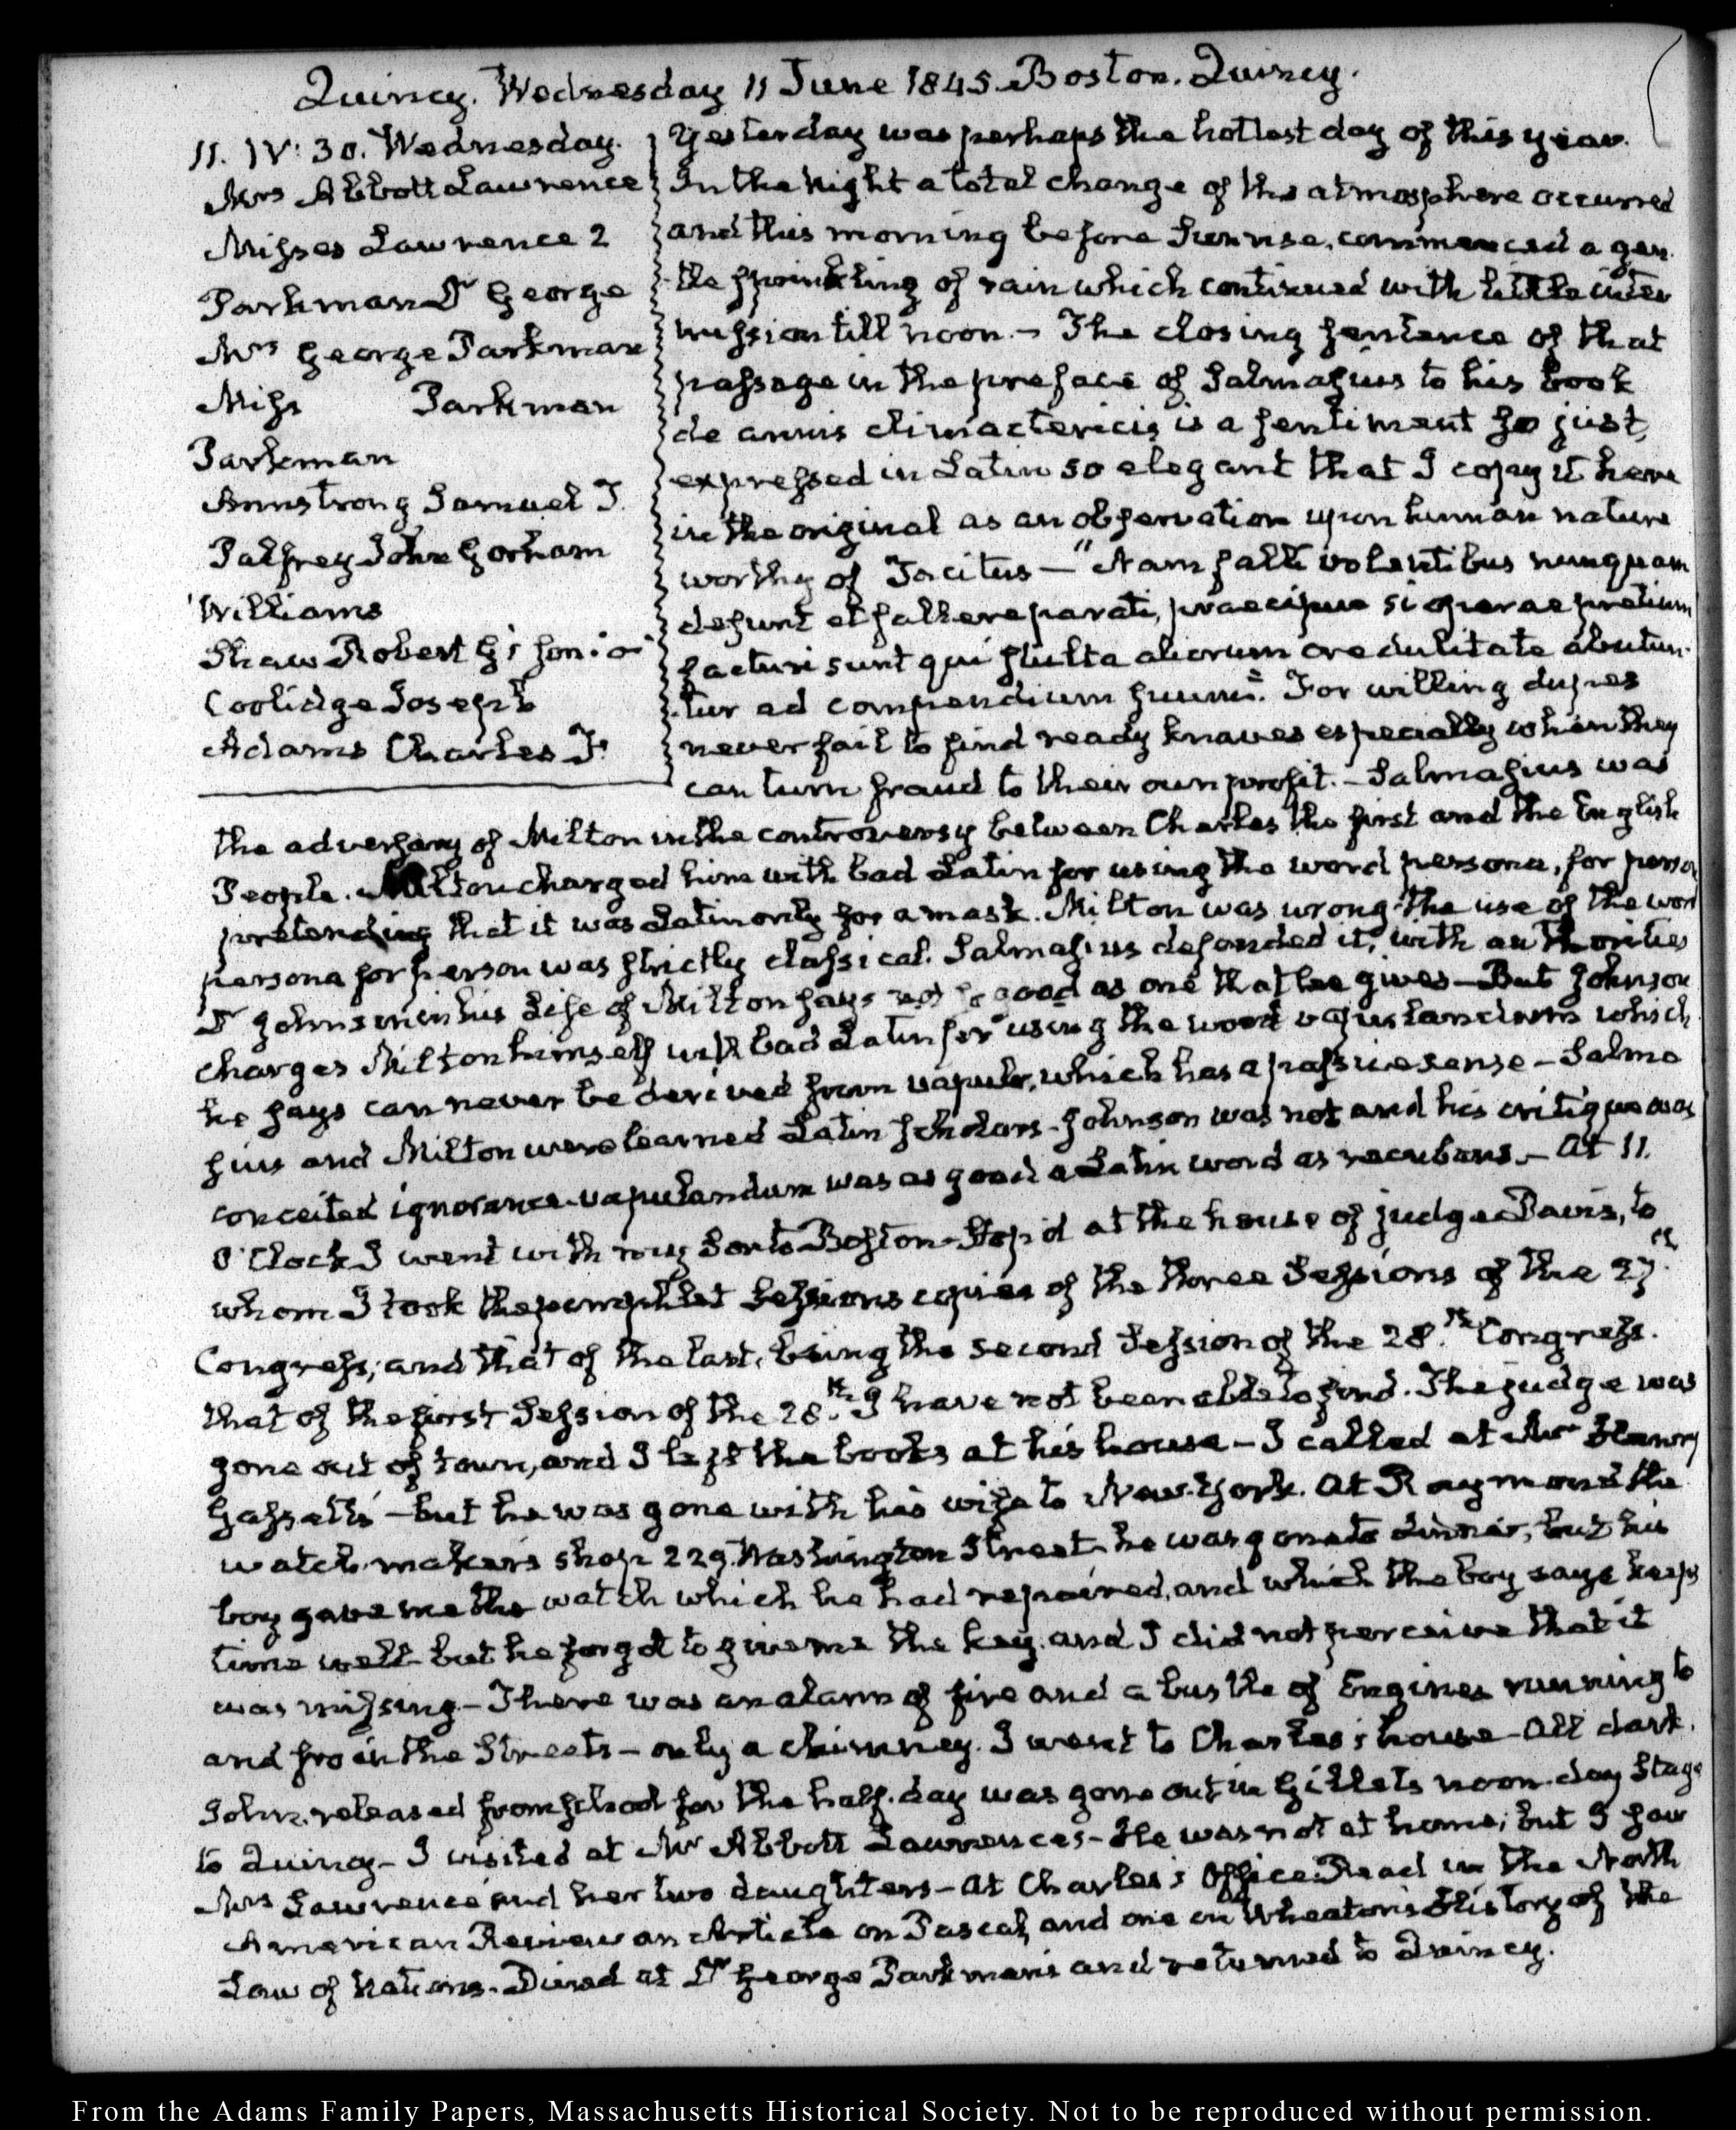 Quincy. Wednesday 11 June 1845. Boston. Quincy.
11. IV: 30. Wednesday.
Mrs Abbott Lawrence
Misses Lawrence 2
Parkman Dr George
Mrs George Parkman
Miss Parkman
Parkman
Armstrong Samuel T.
Palfrey John Gorham
Williams
Shaw Robert G's son
Coolidge Joseph
Adams Charles F.
Yesterday was perhaps the hottest day of this year.
In the Night a total change of the atmosphere occurred
and this morning before Sunrise, commenced a gen-
tle sprinkling of rain which continued with little inter
mission till noon. — The closing sentence of that
passage in the preface of Salmasius to his book
de annis climactericis is a sentiment so just,
expressed in Latin so elegant that I copy it here
in the original as an observation upon human nature
worthy of Tacitus — "Nam falli volentibus nunquam
desunt et fallere parati, praecipue si operae pretium
facturi sunt qui stulta aliorum credulitate abutun-
tur ad compendium suum". For willing dupes
never fail to find ready knaves especially when they
can turn fraud to their own profit. — Salmasius was
the adversary of Milton in the controversy between Charles the first and the English
People. Milton charged him with bad Latin for using the word persona, for person
pretending that it was Latin only for a mask. Milton was wrong. The use of the word
persona for person was strictly classical. Salmasius defended it, with authorities
Dr Johnson in his Life of Milton says not so good as one that he gives — But Johnson
charges Milton himself with bad Latin for using the word vapulandum which
he says can never be derived from vapulo, which has a passive sense — Salma
sius and Milton were learned Latin scholars. Johnson was not and his critique was
conceited ignorance. vapulandum was as good a Latin word as recubans. — At 11.
O'Clock I went with my Son to Boston — Stop'd at the house of judge Davis, to
whom I took the pamphlet Sessions copies of the three Sessions of the 27th
Congress; and that of the last, being the second Session of the 28th Congress.
that of the first Session of the 28th I have not been able to find. The judge was
gone out of town, and I left the books at his house — I called at Mr Henry
Gassett's — but he was gone with his wife to New-York. At Raymond the
watch-maker's shop 229. Washington Street he was gone to dinner, but his
boy gave me the watch which he had repaired, and which the boy says keeps
time well. but he forgot to give me the key. and I did not perceive that it
was missing. — There was an alarm of fire and a bustle of Engines running to
and fro in the Streets — only a chimney. I went to Charles's house — All dark.
John, released from school for the half-day was gone out in Gillet's noon-day Stage
to Quincy — I visited at Mr Abbott Lawrence's — He was not at home; but I saw
Mrs Lawrence and her two daughters — At Charles's Office. Read in the North
American Review an Article on Pascal, and one on Wheaton's History of the
Law of Nations. Dined at Dr George Parkman's and returned to Quincy.
From the Adams Family Papers, Massachusetts Historical Society. Not to be reproduced without permission.